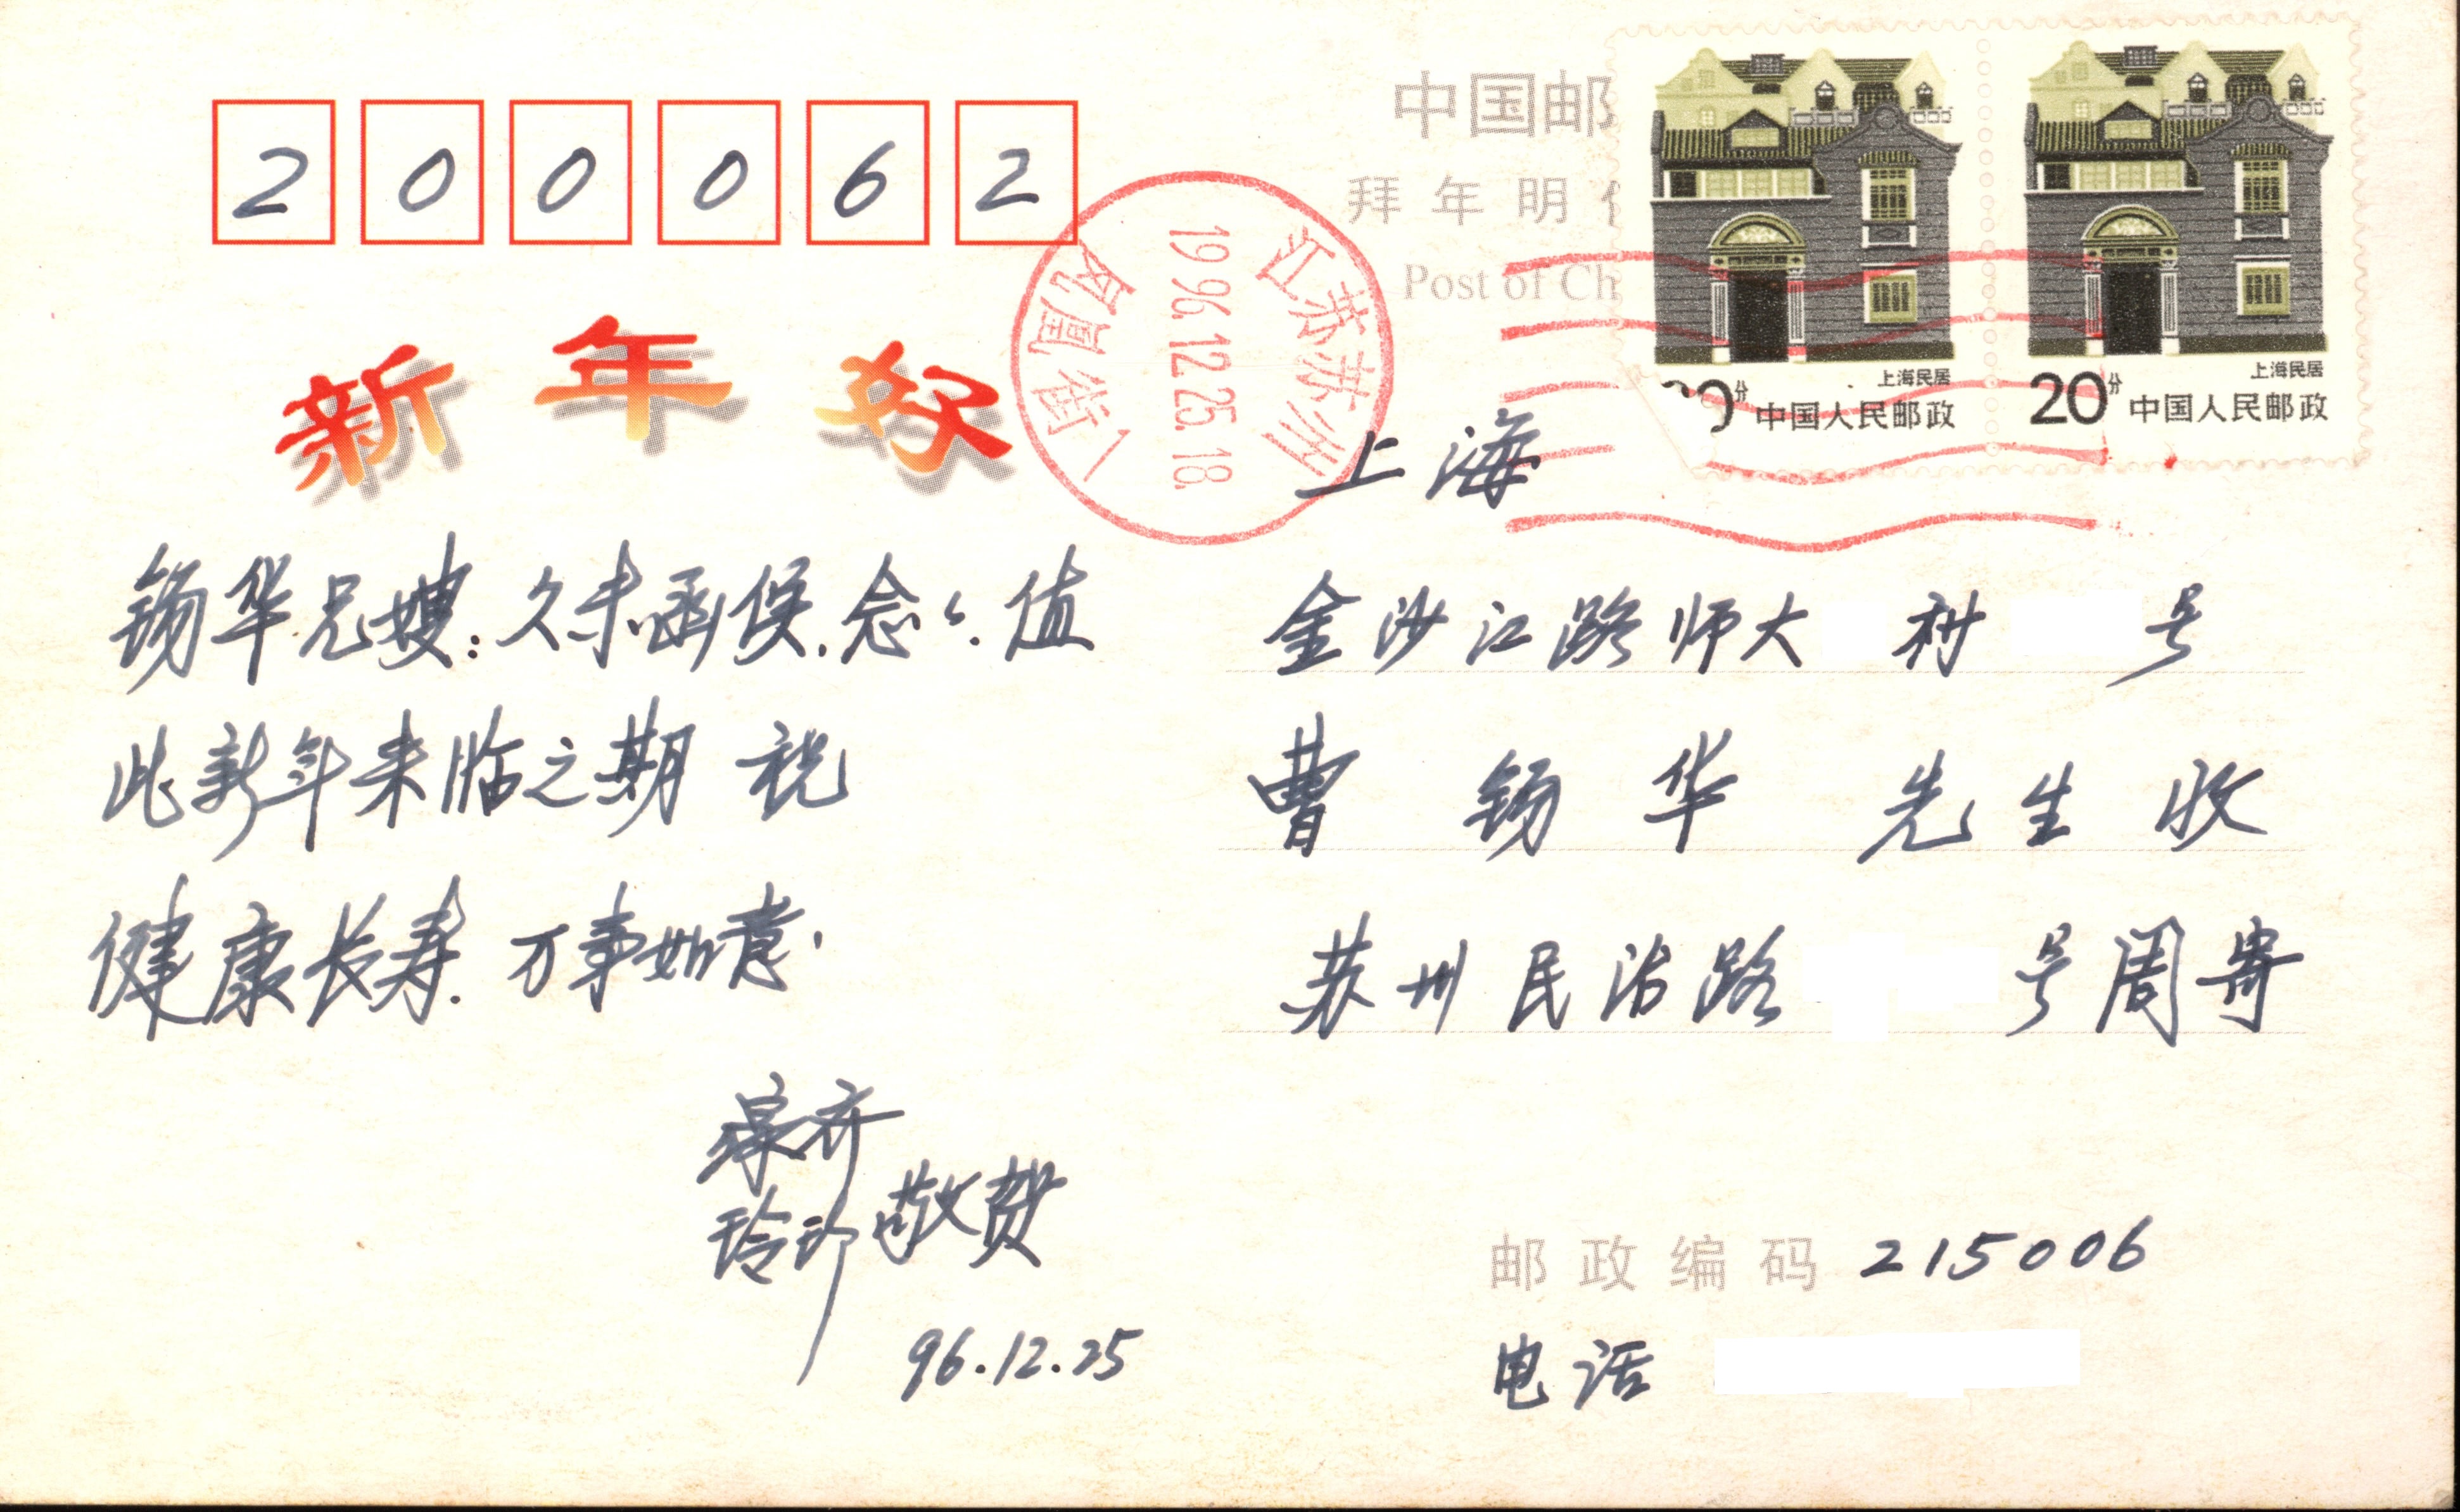 200062
新年好
中国邮
拜年明信
Post of Ch
上海民居
20分 中国人民邮政
上海民居
20分 中国人民邮政
江苏苏州
1996.12.25.18.
凤凰街
上海
金沙江路师大 村 号
曹锡华 先生收
苏州民治路 号周寄
邮政编码 215006
电话
锡华兄嫂：久未函候，念々。值
此新年来临之期 祝
健康长寿，万事如意.
敬贺
96.12.25